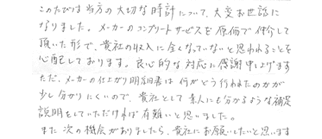 このたびは当方の大切な時計について、大変お世話に
なりました。メーカーのコンプリートサービスを原価で仲介して
頂いた形で、貴社の収入に全くなっていないと思われることを
心配しております。良心的な対応に感謝申し上げます。
ただ、メーカーの仕上がり明細書は何がどう行われたのかが
少し分かりにくいので、貴社として素人にも分かるような補足
説明をしていただければ有難いと思いました。
また次の機会がありましたら、貴社にお願いしたいと思います